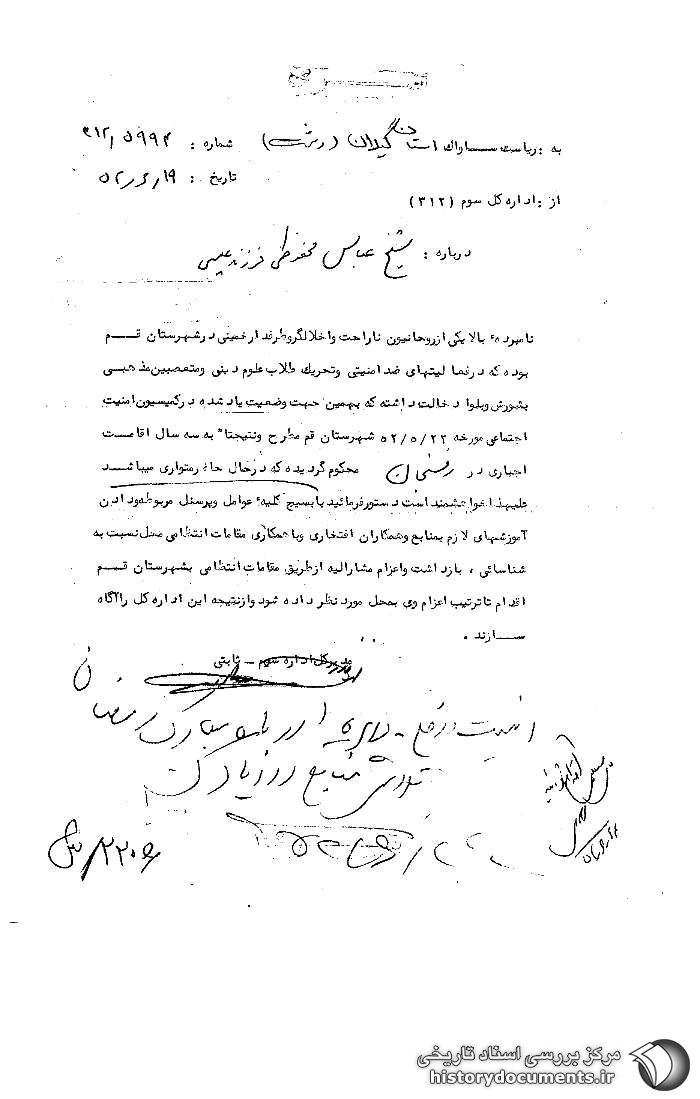 به : ریاست ساواك استان گیلان (رشت) شماره : ۳۱۲/۵۹۹۴
از : اداره کل سوم (۳۱۲) تاریخ : ۵۲/۶/۱۹
درباره : شیخ عباس محفوظی فرزند عیسی
نامبرده بالا یکی از روحانیون ناراحت و اخلالگر و طرفدار خمینی در شهرستان قم
بوده که در فعالیتهای ضد امنیتی و تحریك طلاب علوم دینی و متعصبین مذهبی
بشورش و بلوا دخالت داشته که بهمین جهت وضعیت یاد شده در کمیسیون امنیت
اجتماعی مورخه ۵۲/۵/۲۲ شهرستان قم مطرح و نتیجتا" به سه سال اقامت
اجباری در رفسنجان محکوم گردیده که در حال حاضر متواری میباشد
علیهذا خواهشمند است دستور فرمائید با بسیج کلیه عوامل و پرسنل مربوطه و دادن
آموزشهای لازم بمنابع و همکاران افتخاری و با همکاری مقامات انتظامی محل نسبت به
شناسائی ، بازداشت و اعزام مشارالیه از طریق مقامات انتظامی بشهرستان قم
اقدام تا ترتیب اعزام وی بمحل مورد نظر داده شود و از نتیجه این اداره کل را آگاه
سازند .
مدیر کل اداره سوم - ثابتی
امنیت داخلی - مبارک رمضان
منابع
مرکز بررسی اسناد تاریخی
historydocuments.ir